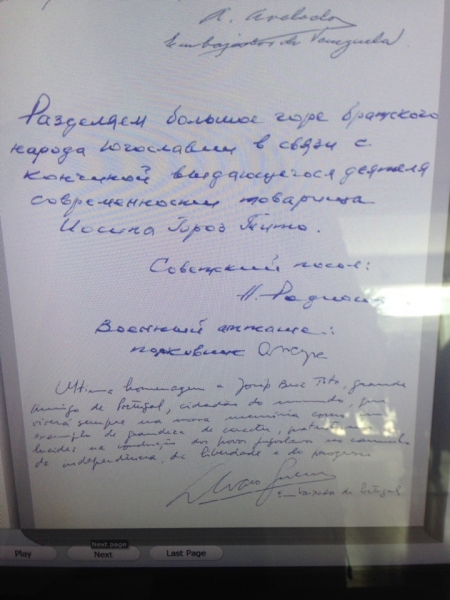 Embajador de Venezuela
Разделяем большое горе братского
народа Югославии в связи с
кончиной выдающегося деятеля
современности товарища
Иосипа Броз Тито.
Советский посол:
Н. Родионов
Военный атташе:
полковник
Ultima homenagem a Josip Broz Tito, grande
amigo de Portugal, cidadão do mundo, que
viverá sempre na nossa memória como um
exemplo de grandeza de caracter,
lucidez na condução dos povos jugoslavos no caminho
da independência, da liberdade e do progresso
Embaixador de Portugal
Play
Next page
Next
Last Page